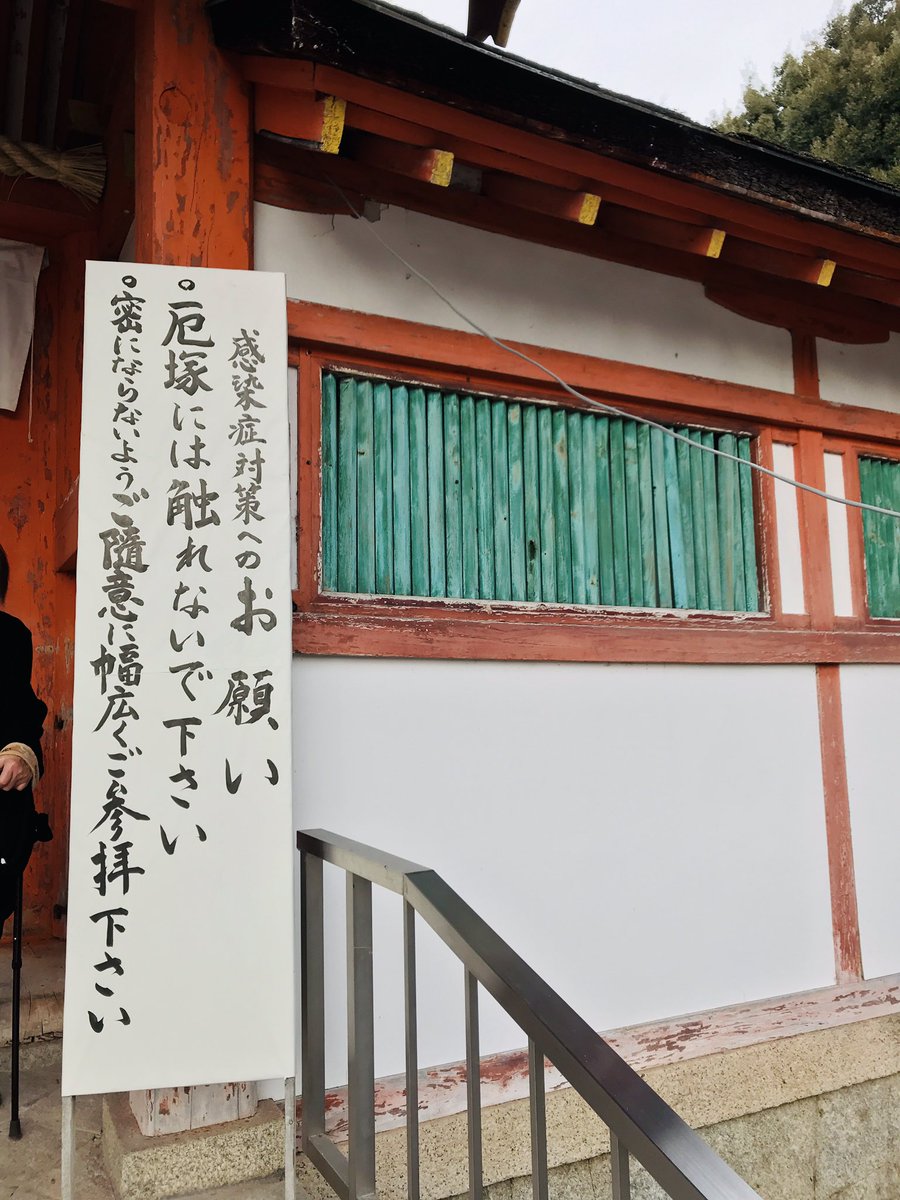 感染症対策へのお願い
。厄塚には触れないで下さい
。密にならないようご随意に幅広くご参拝下さい